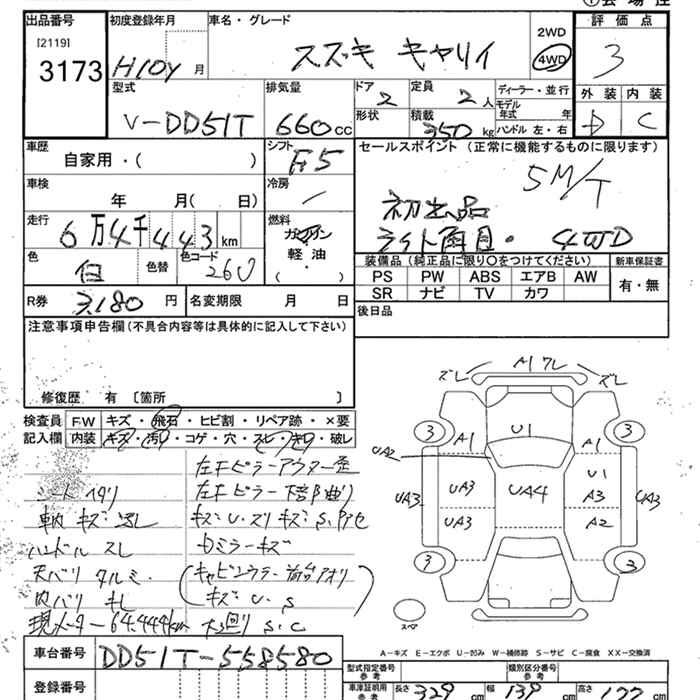 出品番号
[2119]
3173
初度登録年月
H10y 月
車名・グレード
スズキ キャリイ
2WD
4WD
評価点
3
外装 内装
D C
型式
V-DD51T
排気量
660cc
ドア
2
形状
定員
2人
積載
350kg
ディーラー・並行
モデル年式 年
ハンドル 左・右
車歴
自家用・( )
シフト
F5
車検
年 月( 日)
冷房
走行
6万4千443km
燃料
ガソリン
軽油
( )
色
白
色替
色コード
26U
セールスポイント (正常に機能するものに限ります)
5M/T
初出品
ライト角目・ 4WD
装備品 (純正品に限り○をつけてください)
PS PW ABS エアB AW
SR ナビ TV カワ
新車保証書
有・無
R券
3,180円
名変期限 月 日
後日品
注意事項申告欄(不具合内容等は具体的に記入して下さい)
修復歴 有〔箇所 〕
検査員記入欄
FW キズ・飛石・ヒビ割・リペア跡・×要
内装 キズ・汚レ・コゲ・穴・スレ・キレ・破レ
シート ヘタリ
車内 キズ・汚レ
ハンドル スレ
天バリ タルミ・
内バリ キレ
現メーター 64.444km
左Fピラーアウター歪
左Fピラー下部曲り
キズ・U・スリキズ・S
右ミラーキズ
キャビンウラー
キズ・U・S
下廻り S.C
A1 ワレ
ズレ
ズレ
3
3
3
3
U1
A1
A1
UA2
UA3
UA3
UA3
UA4
U1
A3
A2
UA3
スペア
A-キズ E-エクボ U-凹み W-補修跡 S-サビ C-腐食 XX-交換済
車台番号
DD51T-558580
登録番号
型式指定番号
参考
類別区分番号
参考
車庫証明用
参考
長さ 329 cm
幅 139 cm
高さ
cm